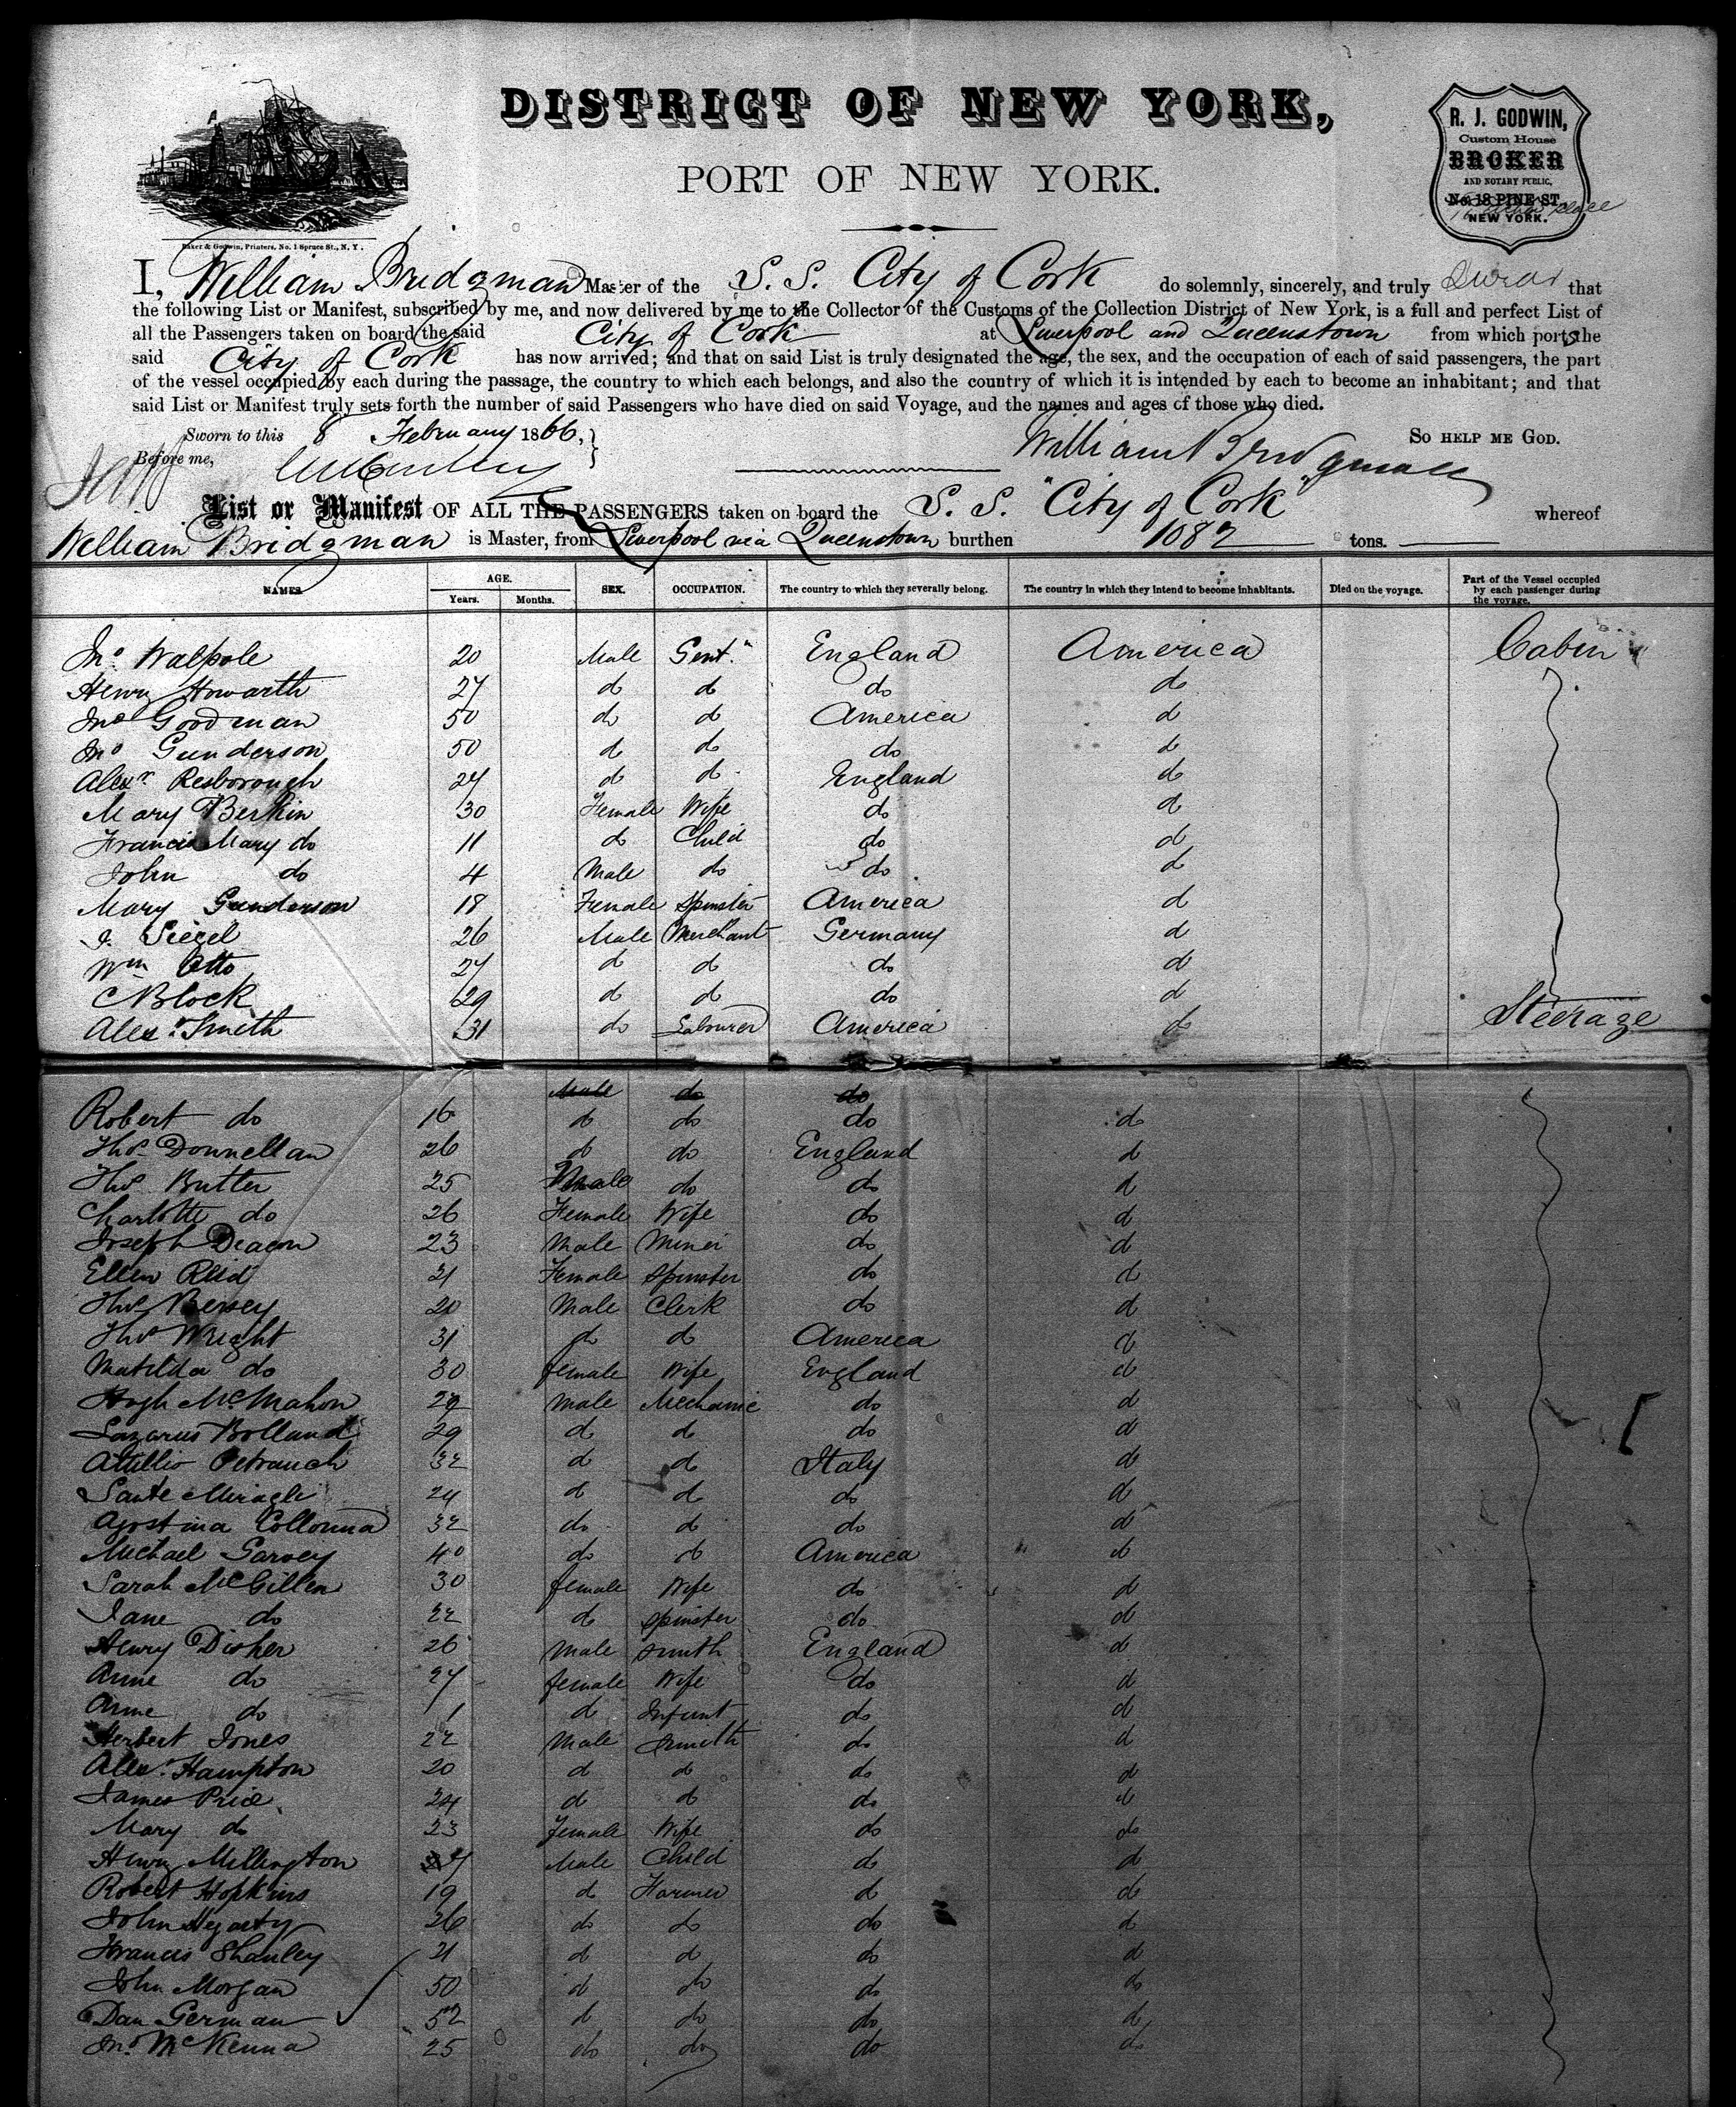 DISTRICT OF NEW YORK,
PORT OF NEW YORK.
R. J. GODWIN,
Custom House
BROKER
AND NOTARY PUBLIC,
No. 18 PINE ST.
NEW YORK.
Baker & Godwin, Printers, No. 1 Spruce St., N. Y.
I, William Bridgman Master of the S. S. City of Cork do solemnly, sincerely, and truly swear that
the following List or Manifest, subscribed by me, and now delivered by me to the Collector of the Customs of the Collection District of New York, is a full and perfect List of
all the Passengers taken on board the said City of Cork at Liverpool and Queenstown from which ports the
said City of Cork has now arrived; and that on said List is truly designated the age, the sex, and the occupation of each of said passengers, the part
of the vessel occupied by each during the passage, the country to which each belongs, and also the country of which it is intended by each to become an inhabitant; and that
said List or Manifest truly sets forth the number of said Passengers who have died on said Voyage, and the names and ages of those who died.
Sworn to this 8 February 1866, SO HELP ME GOD.
Before me, William Bridgman
List or Manifest OF ALL THE PASSENGERS taken on board the S. S. "City of Cork" whereof
William Bridgman is Master, from Liverpool via Queenstown burthen 1082 tons.
NAMES. AGE. Years. Months. SEX. OCCUPATION. The country to which they severally belong. The country in which they intend to become inhabitants. Died on the voyage. Part of the Vessel occupied by each passenger during the voyage.
Jno. Walpole 20 Male Gent. England America Cabin
Henry Howarth 27 d d do d
Jno Goodman 50 do d America d
Jno Gunderson 50 d d do d
Alexr. Resborough 24 d d England d
Mary Berkin 30 Female Wife do d
Francis Mary do 11 do Child do d
John do 4 Male do do d
Mary Gunderson 18 Female Spinster America d
J. Siegel 26 Male Merchant Germany d
Wm Otto 27 d d do d
C Block 29 d d do d
Alexr. Smith 31 do Labourer America do Steerage
Male do do
Robert do 16 d do do d
Thos. Donnellan 26 d do England d
Thos Butter 25 Male do do d
Charlotte do 26 Female Wife do d
Joseph Deacon 23 Male Miner do d
Ellen Reid 21 Female Spinster do d
Thos Bersey 20 Male Clerk do d
Thos Wright 31 do d America d
Matilda do 30 female Wife England d
Hugh McMahon 29 Male Mechanic do d
Lazarus Bolland 29 d d do d
Attillio Petrauch 32 d d Italy d
Sante Miragli 24 d d do d
Agostina Collonna 32 do d do d
Michael Garvey 40 do d America d
Sarah McGillen 30 female Wife do d
Jane do 22 d spinster do d
Henry Disher 26 Male smith England d
Anne do 27 female Wife do d
Anne do 1 d Infant do d
Herbert Jones 22 Male Smith do d
Alexr. Hampton 20 d d do d
James Price 24 d d do d
Mary do 23 Female Wife do do
Henry Millington 7 Male Child do d
Robert Hopkins 19 d Farmer d d
John Hegarty 26 do do do d
Francis Shanley 21 d d do d
John Morgan 50 d do do do
Dan German 52 d do do d
Jno. McKenna 25 do do do do